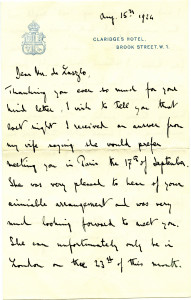 Aug. 15th 1924
CLARIDGE'S HOTEL,
BROOK STREET, W.1.
Dear Mr. de Laszlo,
Thanking you ever so much for you
kind letter, I wish to tell you that
last night I received an answer from
my wife saying she would prefer
meeting you in Paris the 17th of September.
She was very pleased to hear of your
amiable arrangement and was very
much looking forward to meet you.
She can unfortunately only be in
London on the 23th of this month.